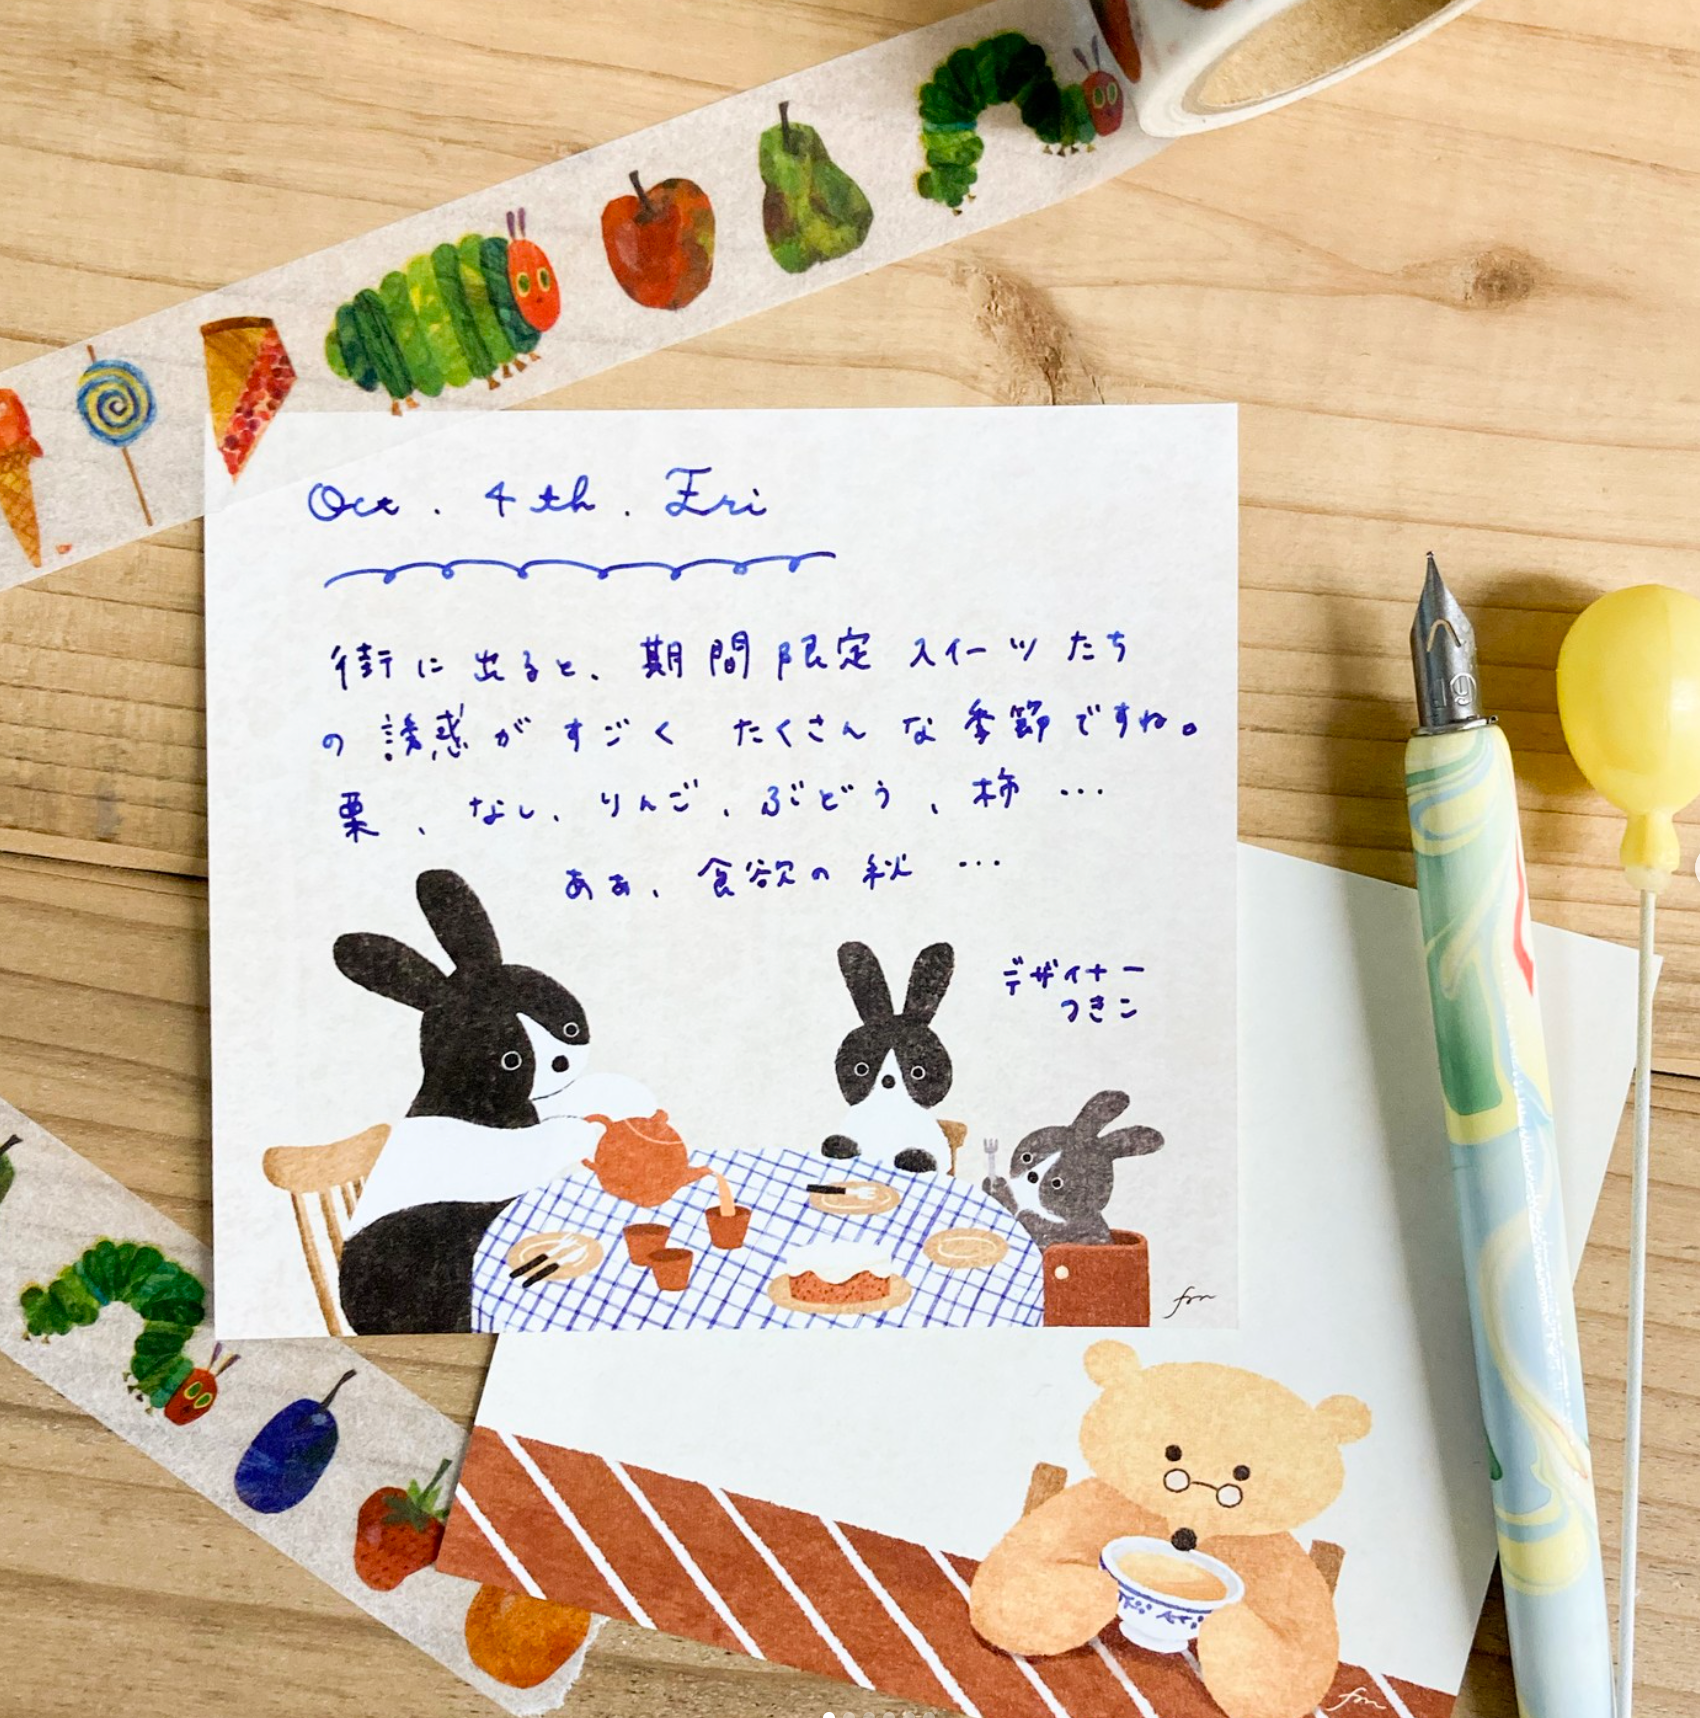 Oct. 4th. Fri
街に出ると、期間限定スイーツたち
の誘惑がすごくたくさんな季節ですね。
栗、なし、りんご、ぶどう、柿…
ああ、食欲の秋…
デザイナー
つきこ